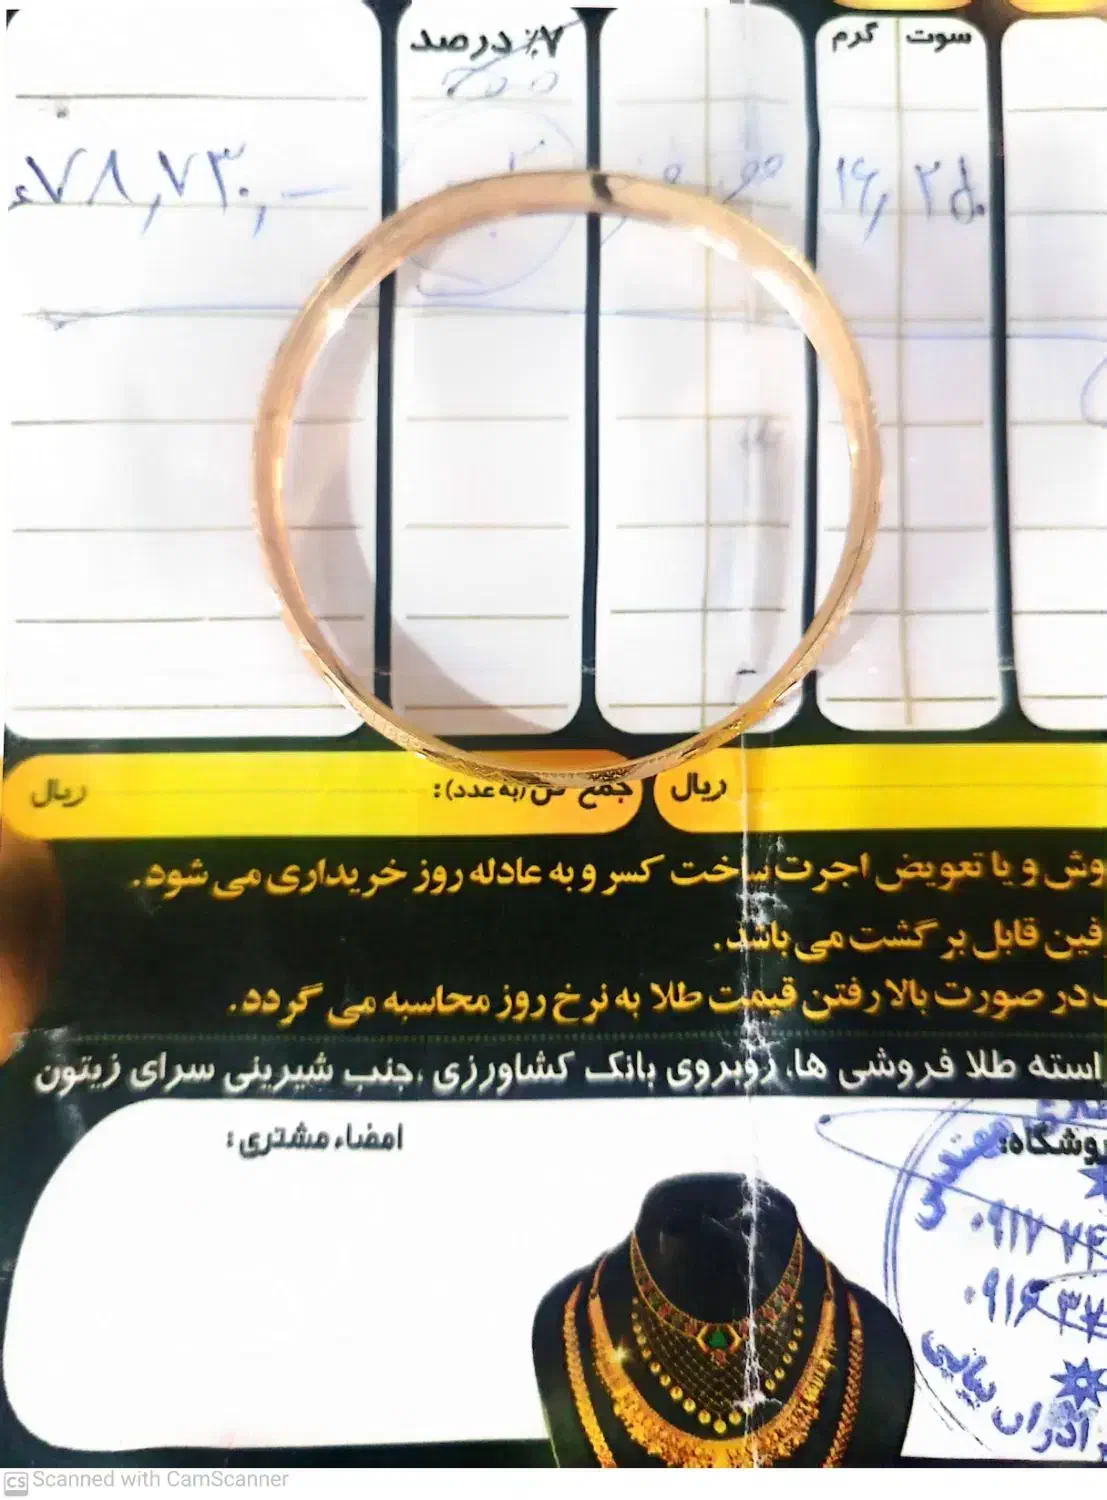 سوت گرم
٪۷ درصد
۱۶,۲۵۰
۷۸,۷۳۰,-
ریال
جمع کل (به عدد):
ریال
وش و یا تعویض اجرت ساخت کسر و به عادله روز خریداری می شود.
فین قابل برگشت می باشد.
در صورت بالا رفتن قیمت طلا به نرخ روز محاسبه می گردد.
استه طلا فروشی ها، روبروی بانک کشاورزی ،جنب شیرینی سرای زیتون
امضاء مشتری:
وشگاه:
مهندس
۰۹۱۷ ۷۴
۰۹۱۶ ۳۷
Scanned with CamScanner